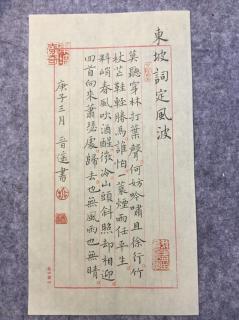 東坡詞定風波
莫聽穿林打葉聲何妨吟嘯且徐行竹
杖芒鞋輕勝馬誰怕一蓑煙雨任平生
料峭春風吹酒醒微冷山頭斜照卻相迎
回首向來蕭瑟處歸去也無風雨也無晴
庚子三月 晉書